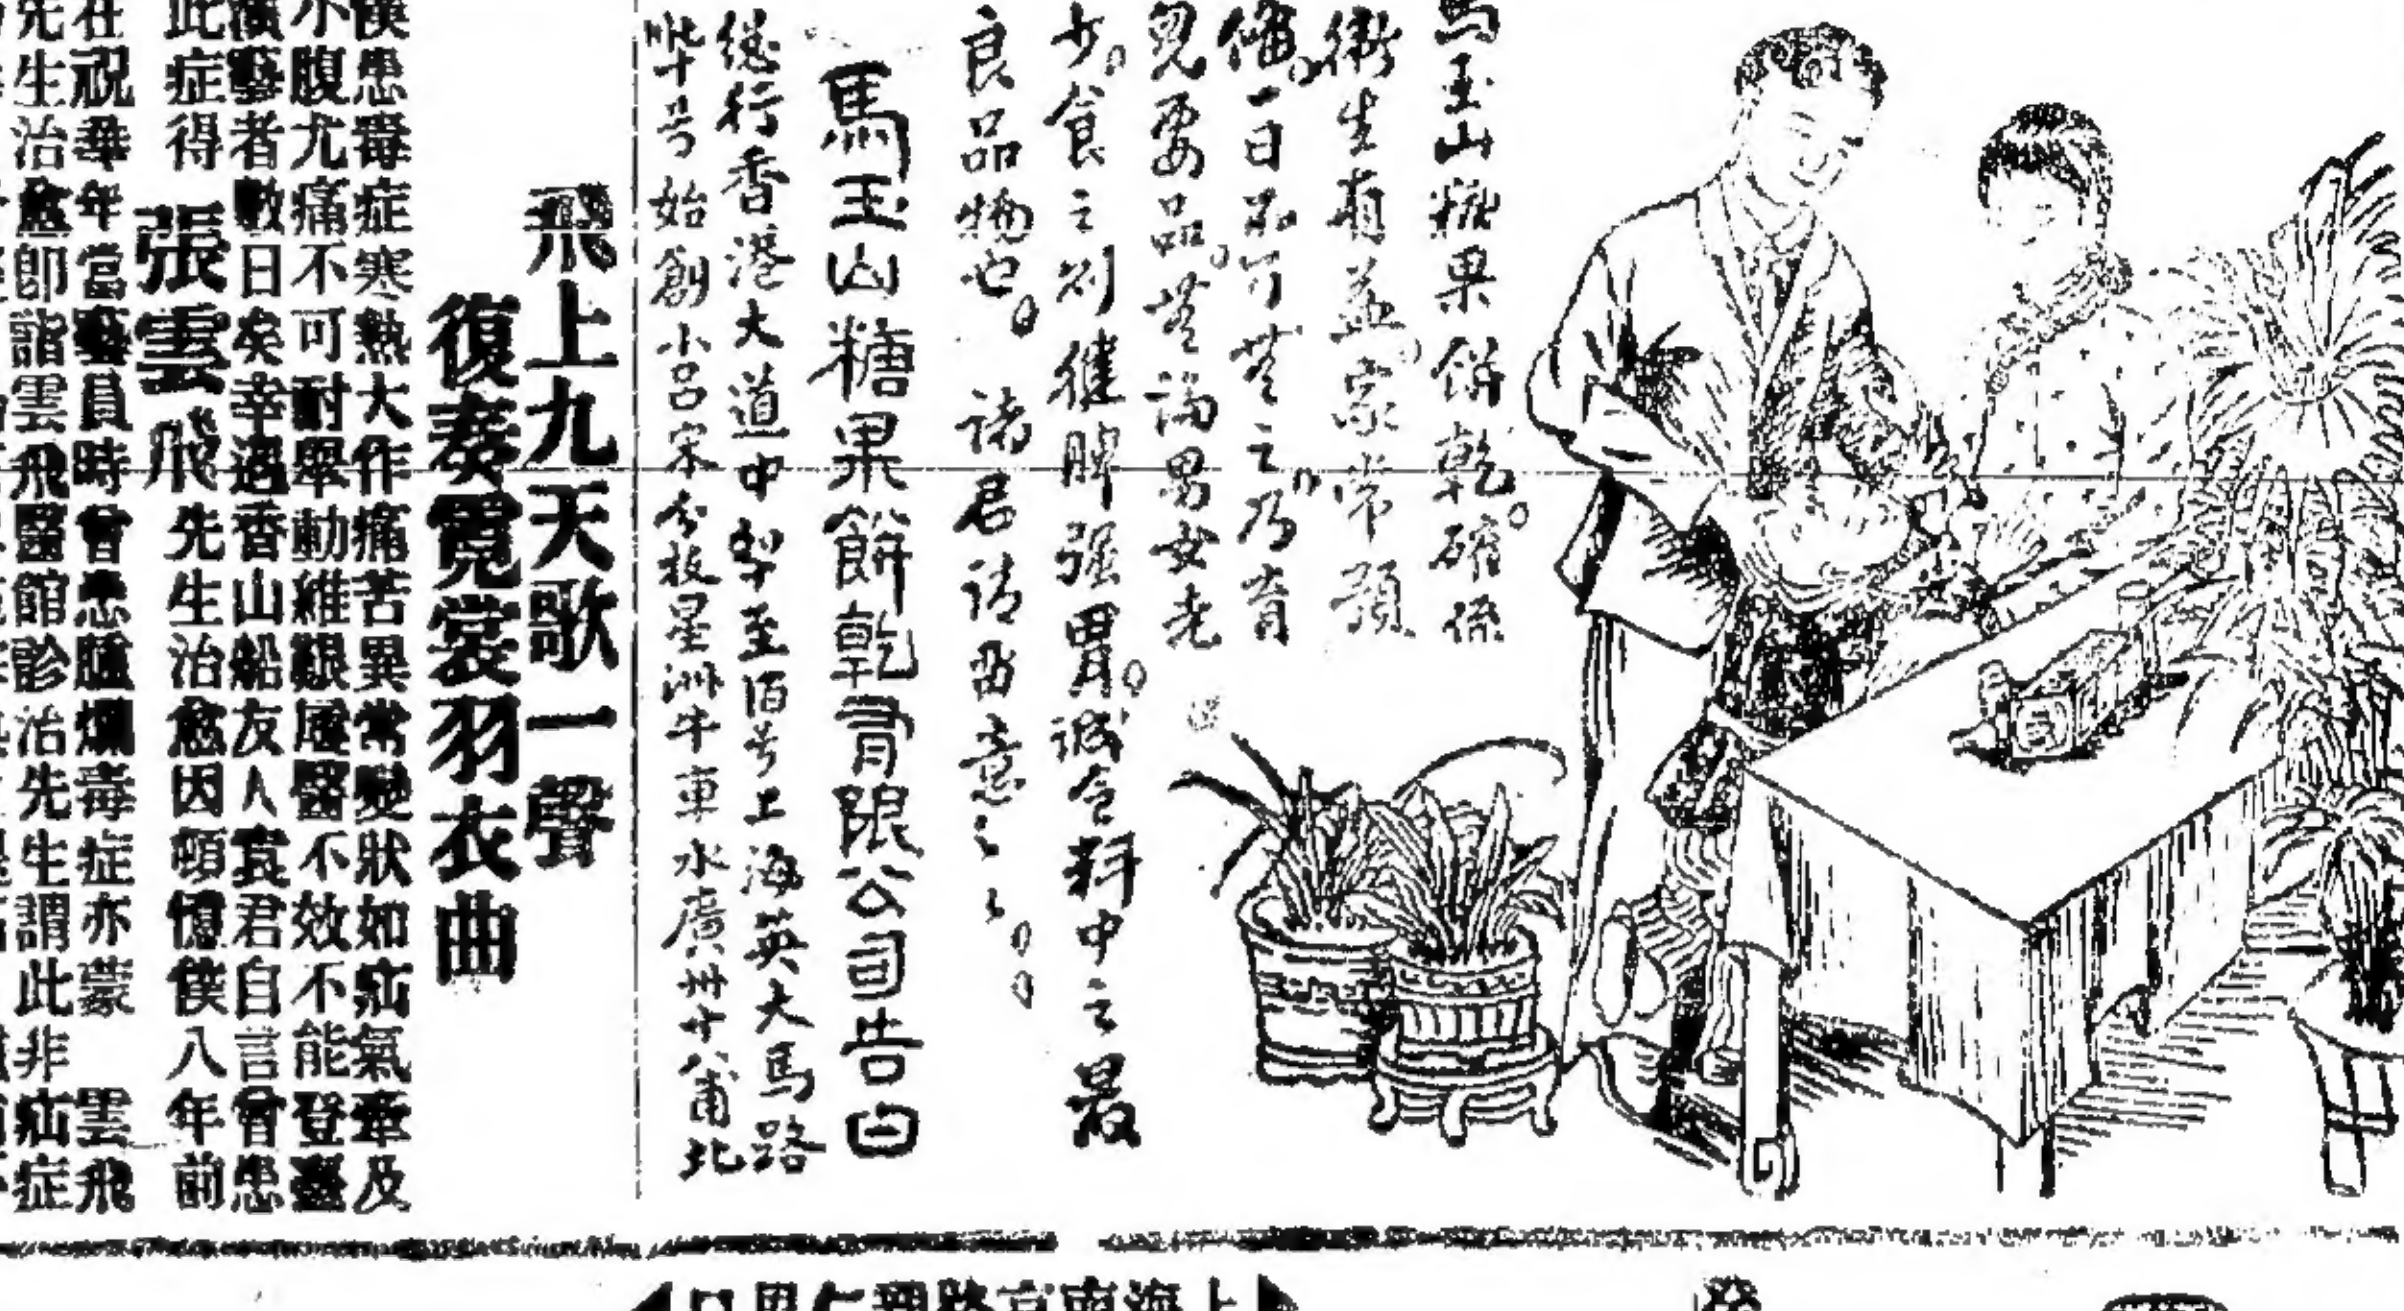 馬玉山糖果餅乾。確係
衛生有益家常預
備。一日不可無之。乃育
兒要品。無論男女老
少。食之則健脾强胃。誠食料中之最
良品物也。諸君請留意〻〻。。
馬玉山糖果餅乾有限公司告白
總行香港大道中 至佰号上海英大馬路
号始創小呂宋分枝星洲牛車水廣州十八甫北
飛上九天歌一聲
復奏霓裳羽衣曲
僕患毒症寒熱大作痛苦異常變狀如疝氣牽及
小腹尤痛不可耐舉動維艱屢醫不效不能登臺
演藝者數日矣幸遇香山船友人袁君自言曾患
此症得 張雲飛先生治愈因頓憶僕八年前
在祝華年當藝員時曾患 爛毒症亦蒙 雲飛
先生治愈卽詣雲飛醫館診治先生謂此非疝症
上海南京路
發